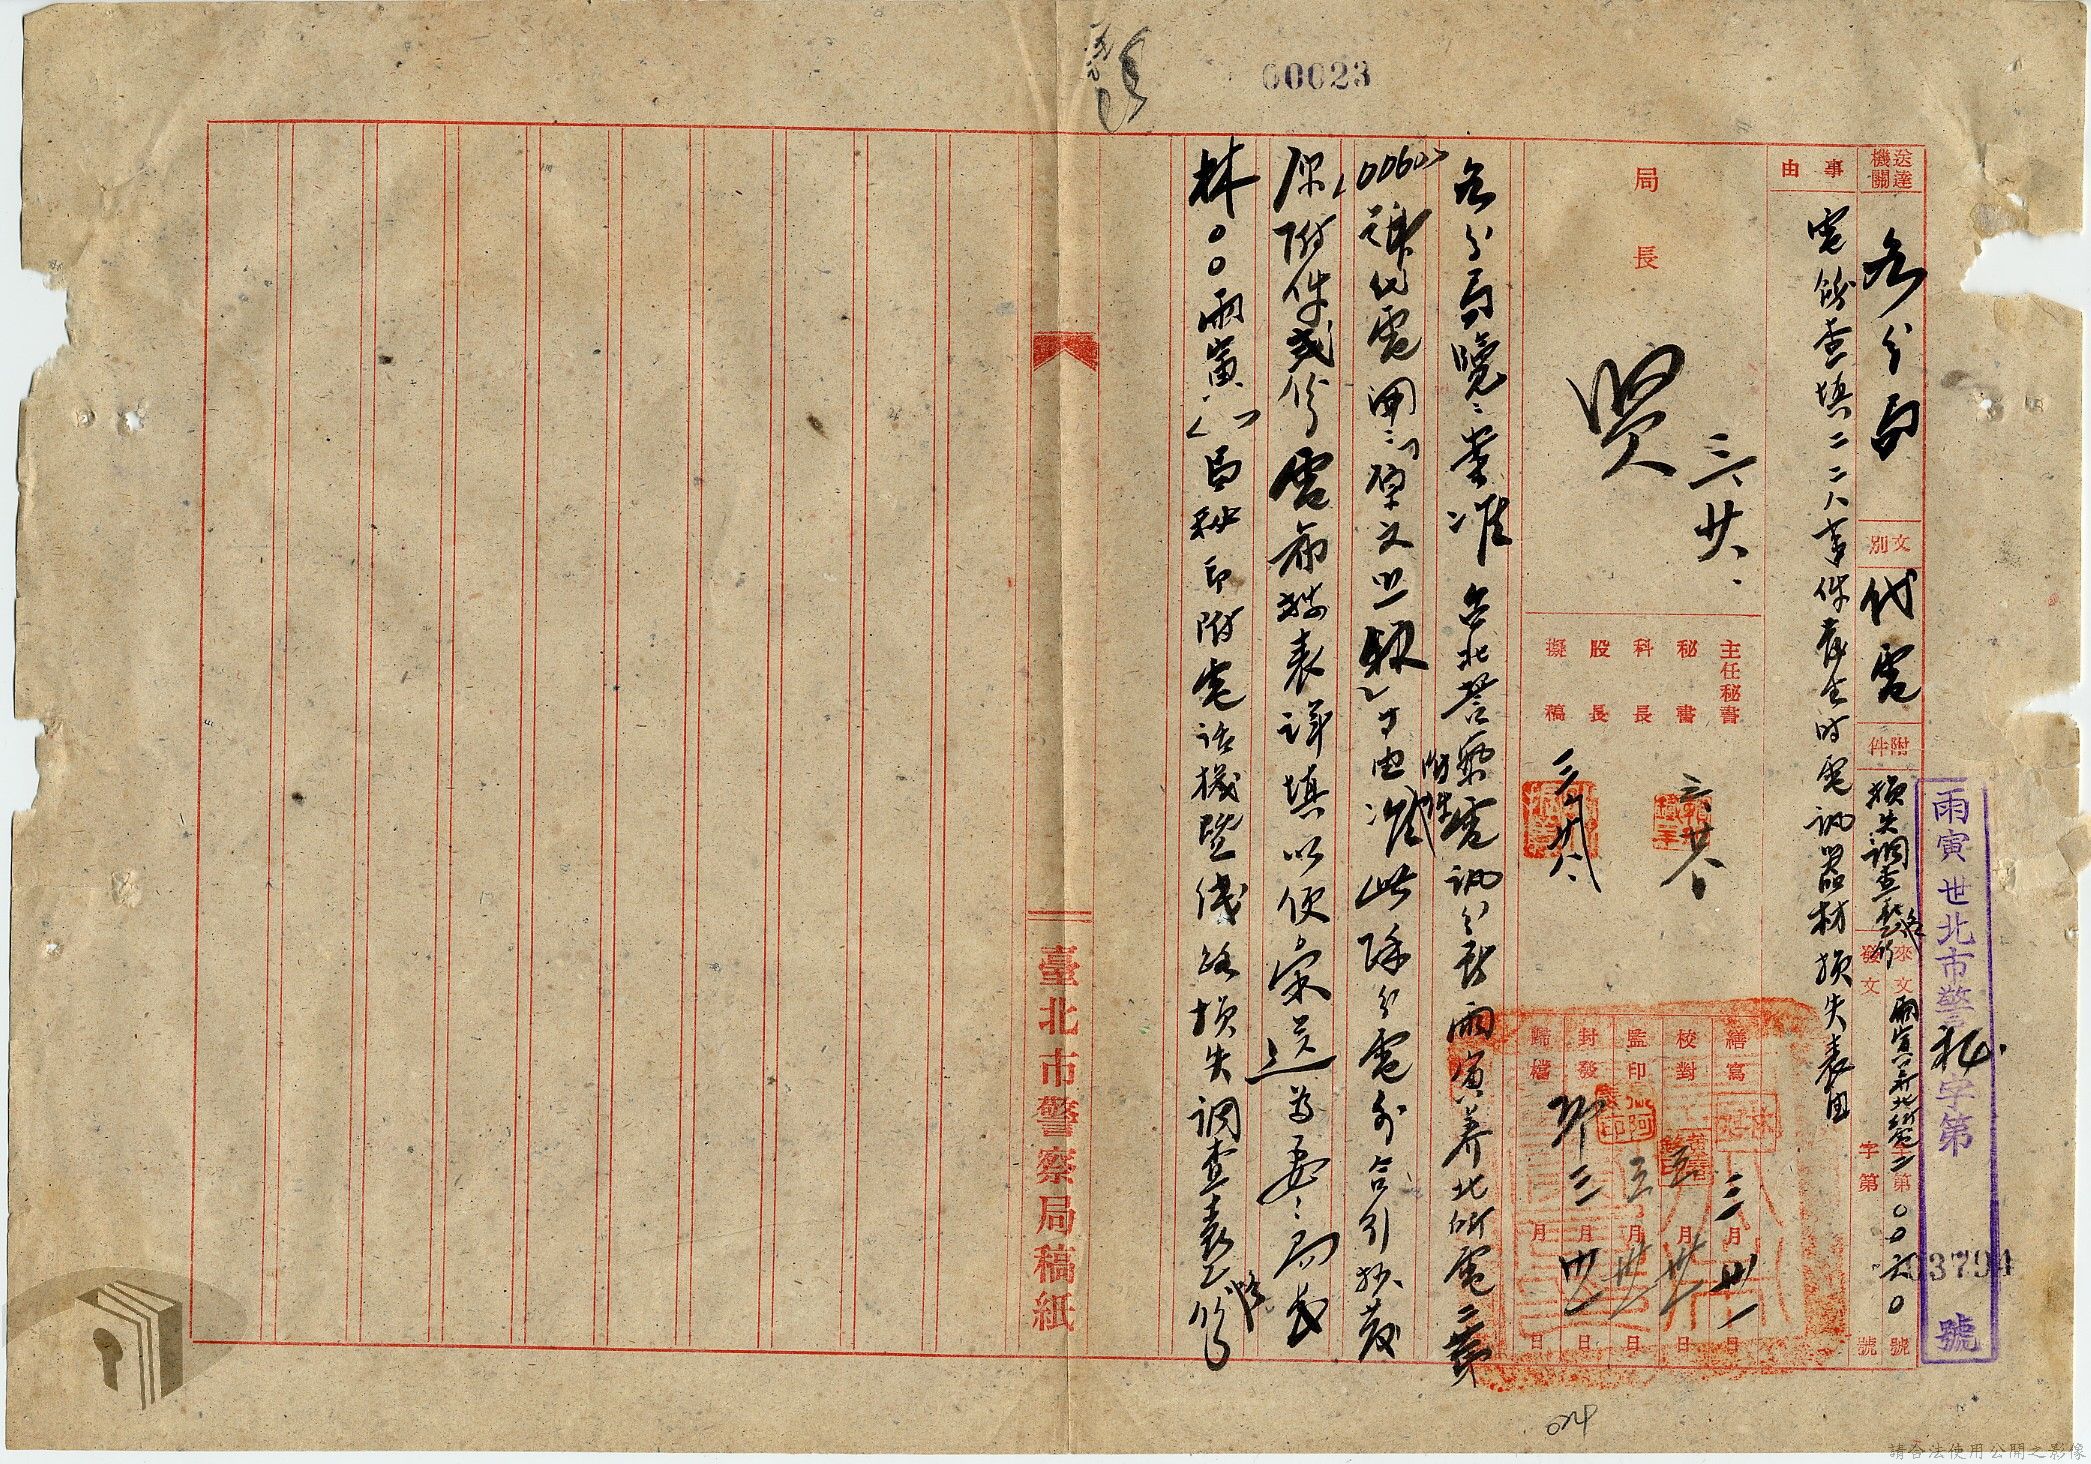 00023
雨寅世北市警秘字第03794號
送達機關 各分局
文別 代電
附件 損失調查表乙份
來文 字第 二00六0 號
發文 字第 號
事由 電飭查填二二八事件發生時電訊器材損失表由
局長
三、廿、
主任秘書
秘書
科長
股長
擬稿
繕寫 三月卅一日
校對 月 日
監印 月 日
封發 三月卅一日
歸檔 月 日
各分局覽:案准 台北警察電訊分所雨寅養北所電二第
0060號代電開:「原文照敘」等由附件准此除分電外合引抄發
原附件或份電希按表詳填以便彙送為要:局長
林00雨寅 局秘印附電話機暨線路損失調查表乙份
臺北市警察局稿紙
024
請合法使用公開之影像